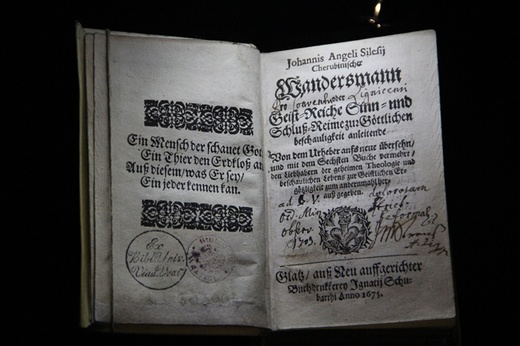 Ein Mensch der schauet Got
Ein Thier den Erdkloß an
Auß diesem, was Er sey/
Ein jeder kennen kan.
Ex
Bibl. Univ.
Johannis Angeli Silesij
Cherubinischer
Wandersmann
oder
Geist-Reiche Sinn- und
Schluß-Reime zur Göttlichen
beschauligkeit anleitende
Von dem Urheber aufs neue übersehn/
und mit dem Sechsten Buche vermehrt/
den Liebhabern der geheimen Theologie und
beschaulichen Lebens zur Geistlichen Er-
götzligkeit zum andernmahl her-
auß gegeben.
ad B. V. dolorosam
1703.
Glatz/ auß Neu auffgerichter
Buchdrukkerey Ignatij Schu-
barthi Anno 1675.